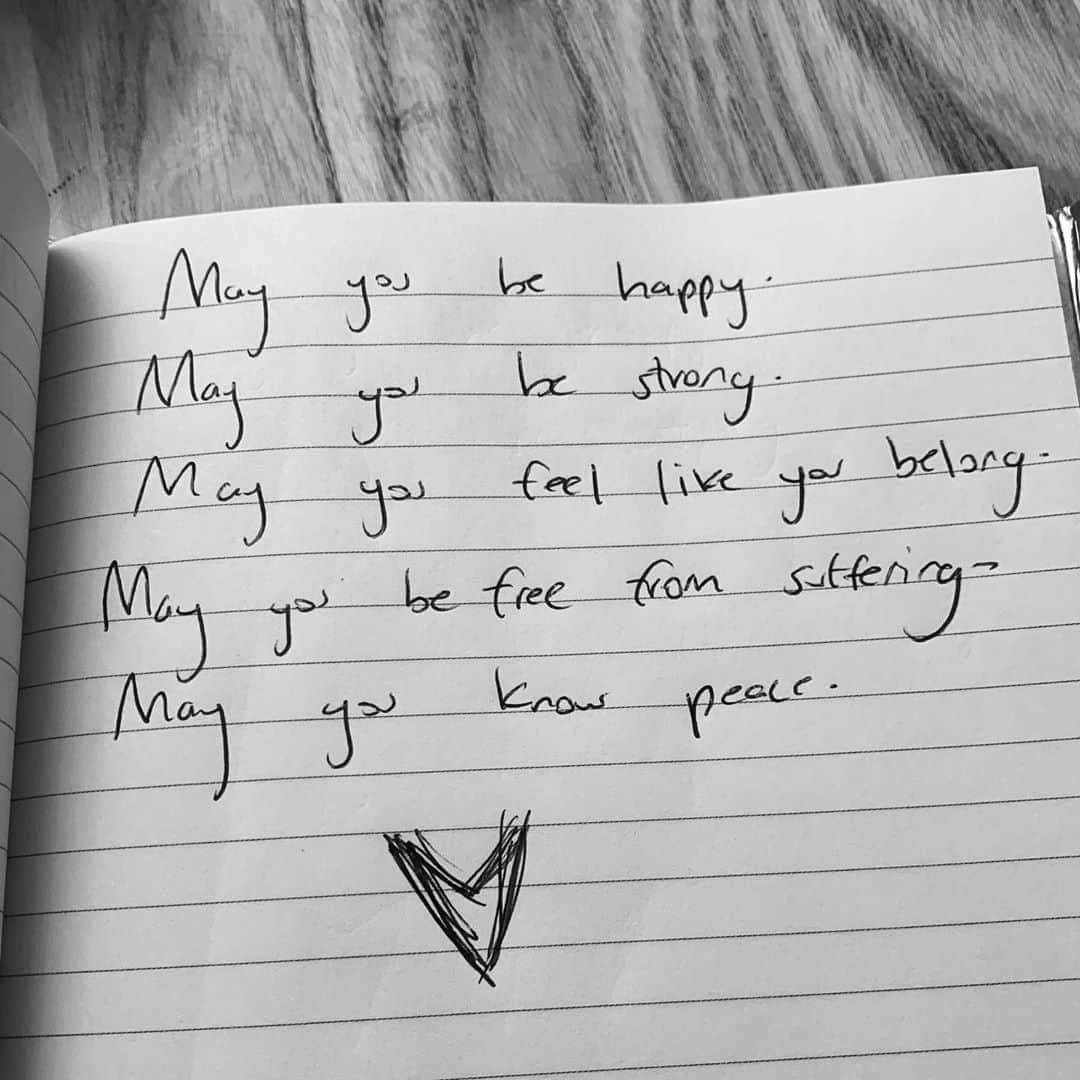 May you be happy.
May you be strong.
May you feel like you belong.
May you be free from suffering.
May you know peace.